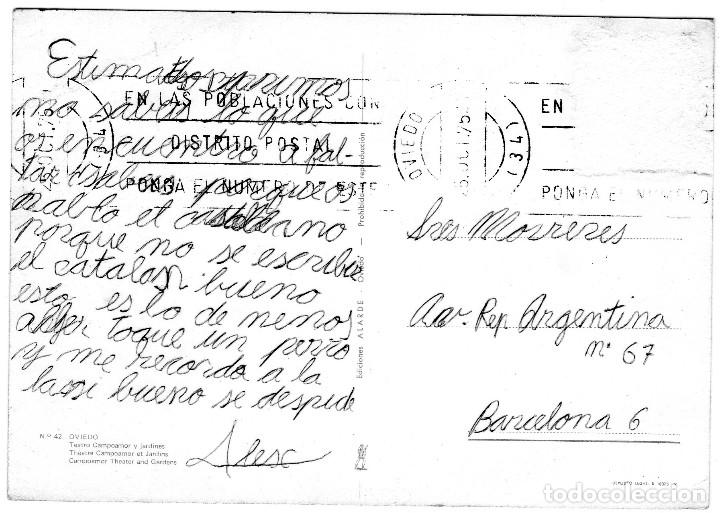 Estimados primos
no sabeis lo que
os encuentro a fal-
tar sabeis porque os
hablo el castellano
porque no se escribir
el catalan bueno
esto es lo de menos
ayer toque un perro
y me recordo a la
lassi bueno se despide
Alesc
EN LAS POBLACIONES CON
DISTRITO POSTAL
PONGA EL NUMERO DE ESTE
OVIEDO
(34)
EN
PONGA EL NUMERO
Sres Moureres
Av. Rep Argentina
nº 67
Barcelona 6
Ediciones ALARDE - Oviedo - Prohibida la reproducción
N.º 42 OVIEDO
Teatro Campoamor y Jardines
Théatre Campoamor et Jardins
Campoamor Theater and Gardens
todocoleccion